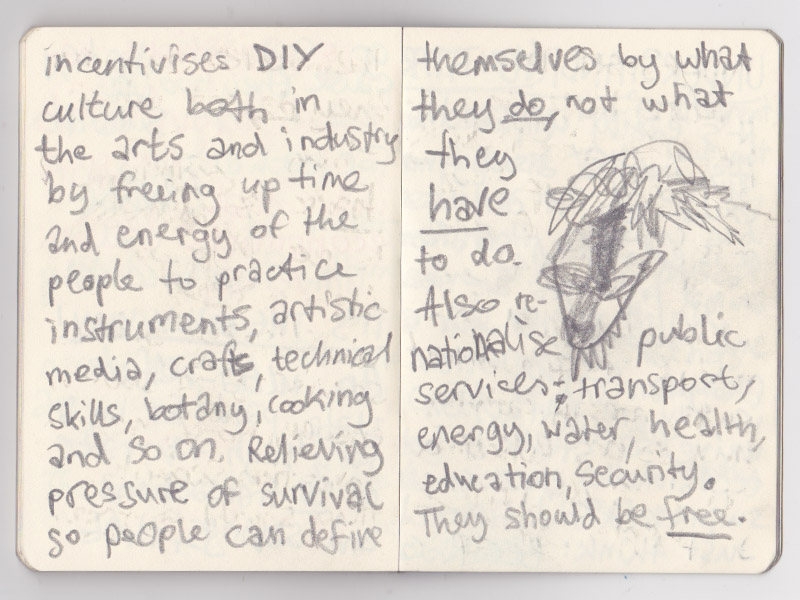 incentivises DIY
culture both in
the arts and industry
by freeing up time
and energy of the
people to practice
instruments, artistic
media, crafts, technical
skills, botany, cooking
and so on. Relieving
pressure of survival
so people can define
themselves by what
they do, not what
they
have
to do.
Also re-
nationalise public
services: transport,
energy, water, health,
education, security.
They should be free.